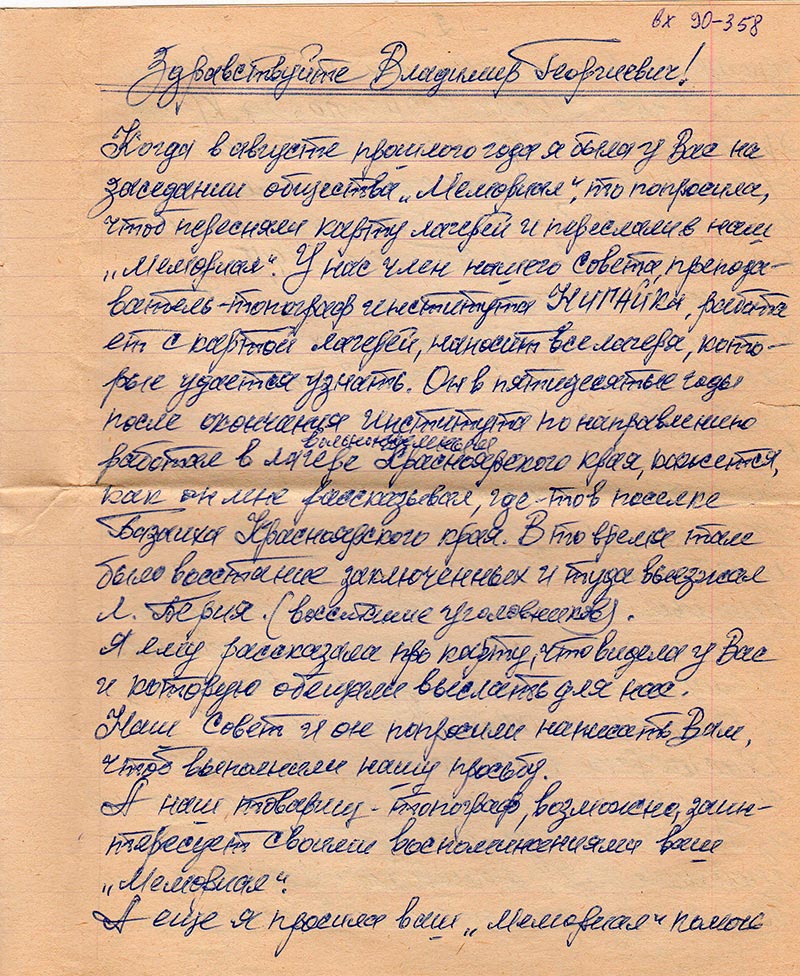 вх 90-358
Здравствуйте Владимир Георгиевич!
Когда в августе прошлого года я была у Вас на
заседании общества „Мемориал“, то попросила,
чтоб пересняли карту лагерей и переслали в наш
„Мемориал“. У нас член нашего совета препода-
ватель-топограф института КИПАЙКА, работа
ет с картой лагерей, наносит все лагеря, кото-
рые удается узнать. Он в пятидесятые годы
после окончания института по направлению
вольнонаемным
работал в лагере Красноярского края, кажется,
как он мне рассказывал, где-то в поселке
Базаиха Красноярского края. В то время там
было восстание заключенных и туда выезжал
Л. Берия. (восстание уголовников).
Я ему рассказала про карту, что видела у Вас
и которую обещали выслать для нас.
Наш Совет и он попросили написать Вам,
чтоб выполнили нашу просьбу.
А наш товарищ-топограф, возможно, заин-
тересует своими воспоминаниями ваш
„Мемориал“.
А еще я просила ваш „Мемориал“ помочь